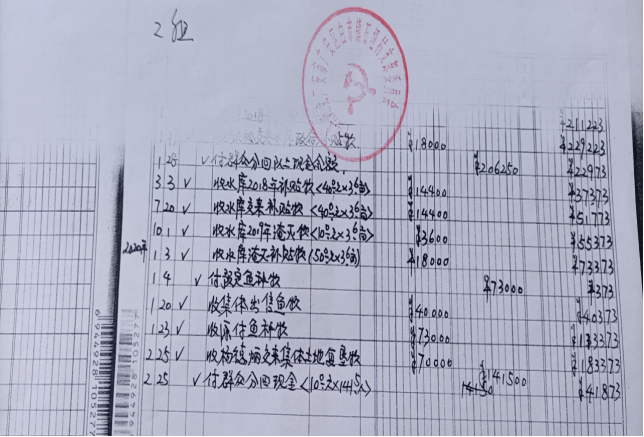 2组
211223
¥18000 ¥229223
1 25 ✓付群众分回以上现金余额 ¥206250 ¥22973
3 3 ✓ 收水库2018年补贴款<40元×36亩> ¥14400 ¥37373
7 20 ✓ 收水库交来补贴款<40元×36亩> ¥14400 ¥51773
10 1 ✓ 收水库2019年淹灭款<10元×36亩> ¥3600 ¥55373
2020年 1 3 ✓ 收水库淹灭补贴款(50元×36亩) ¥18000 ¥73373
1 4 ✓付 鱼补款 ¥73000 ¥373
1 20 ✓ 收集体出售鱼款 ¥40000 ¥40373
1 23 ✓ 收 付鱼补款 ¥73000 ¥113373
2 25 ✓ 收杨 交来集体土地复垦款 ¥70000 ¥183373
2 25 ✓付群众分回现金<10元×1415人> 14150 ¥141500 ¥41873
6944928105277
944928105277